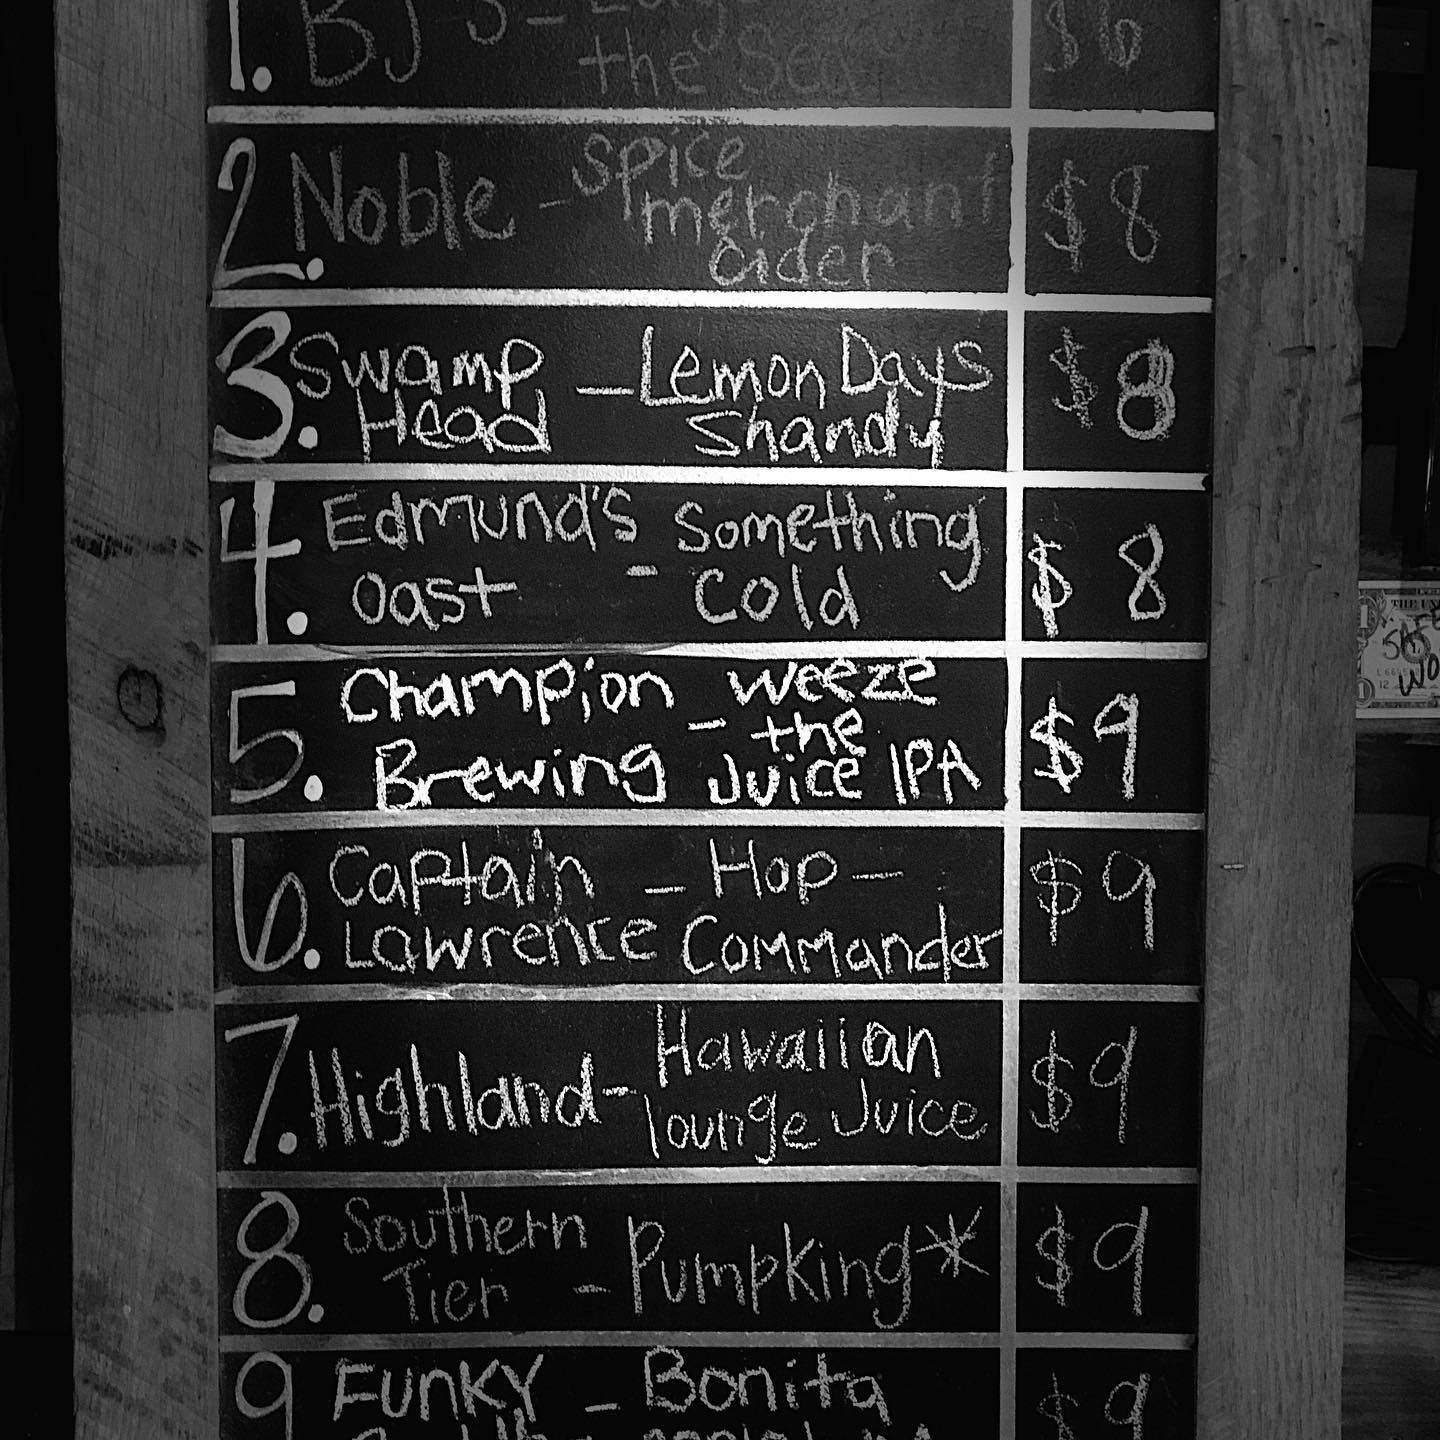 1. BJ's - the Sea $6
2. Noble - Spice merchant cider $8
3. Swamp Head - Lemon Days Shandy $8
4. Edmund's Oast - Something Cold $8
5. Champion Brewing - weeze the Juice IPA $9
6. Captain Lawrence - Hop - Commander $9
7. Highland - Hawaiian lounge Juice $9
8. Southern Tier - Pumpking* $9
9 Funky - Bonita $9
THE UN
SAFE
WO